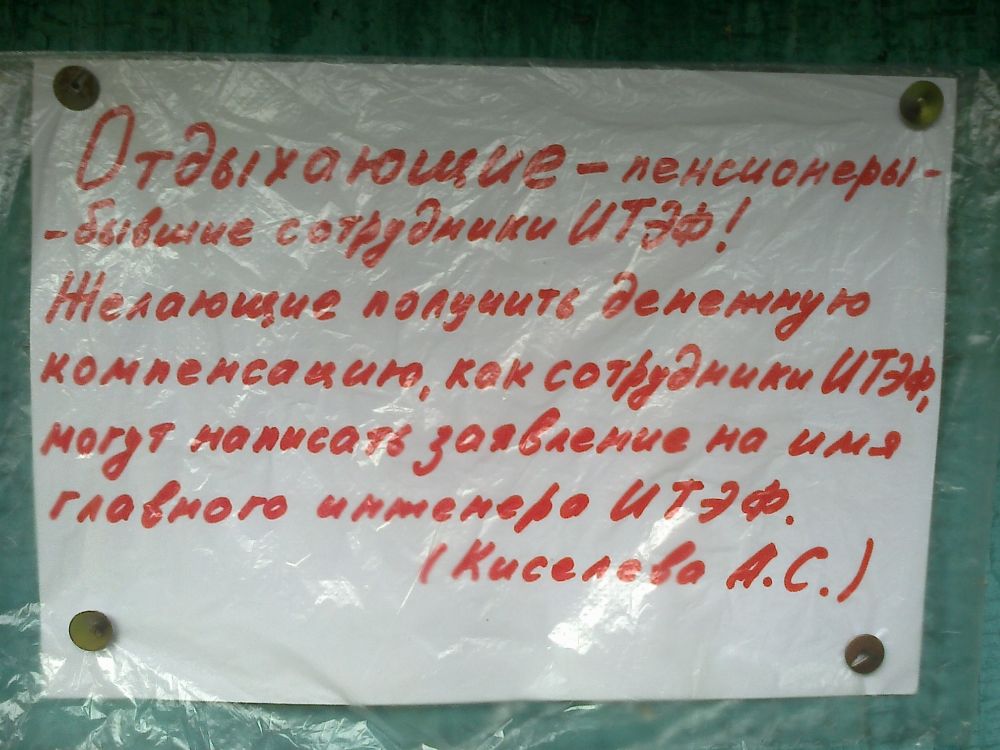 Отдыхающие - пенсионеры -
- бывшие сотрудники ИТЭФ!
Желающие получить денежную
компенсацию, как сотрудники ИТЭФ,
могут написать заявление на имя
главного инженера ИТЭФ.
(Киселева А.С.)